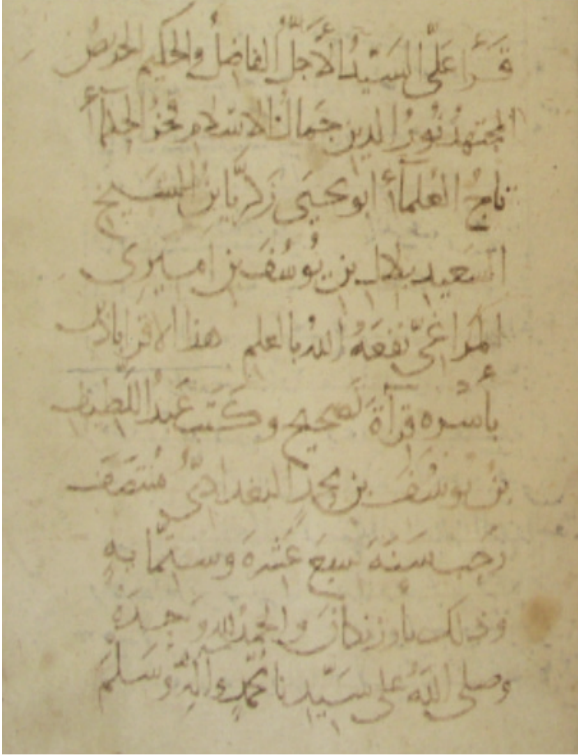 قرأ علي السيد الأجل الفاضل والحكيم الحريص
المجتهد نور الدين جمال الاسلام فخر الحكمآء
تاج العلمآء ابو يحيى زكريا بن الشيخ
السعيد بلال بن يوسف بن اميرى
المراغي نفعه الله بالعلم هذا الاقراباذين
بأسره قرآءة تصحيح وكتب عبد اللطيف
بن يوسف بن محمد البغدادي منتصف
رجب سنة سبع عشرة وستمايه
وذلك بأرزنكان والحمد لله وحده
وصلى الله على سيدنا محمد وآله وسلم